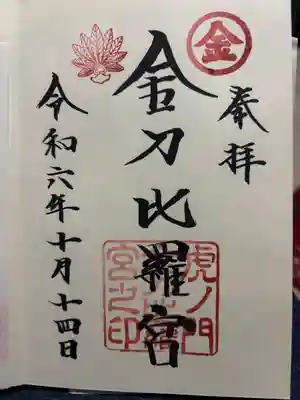 金
奉拝
金刀比羅宮
虎ノ門
宮之印
令和六年十月十四日